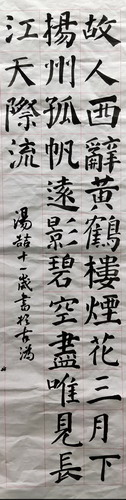 故人西辭黃鶴樓煙花三月下
揚州孤帆遠影碧空盡唯見長
江天際流
湯十一歲書於古